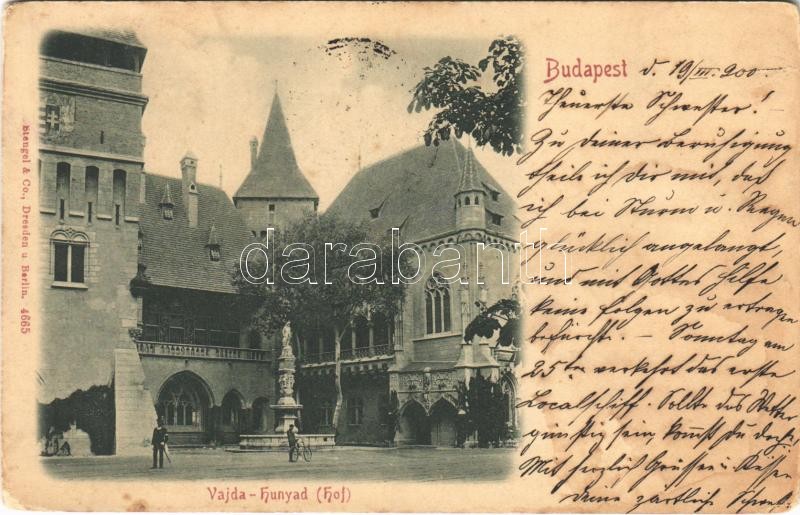 Budapest d. 19/III. 900.
Theuerste Schwester!
Zu deiner Beruhigung
theile ich dir mit, daß
ich bei Sturm u. Regen
glücklich angelangt,
und mit Gottes Hilfe
keine Folgen zu ertragen
befürchte. – Sonntag am
25ten verkehrt das erste
Localschiff. Sollte das Wetter
günstig sein, kommst du doch.
Mit herzlich Grüssen u. Küssen
deine zärtliche Schwest.
Vajda-Hunyad (Hof)
Stengel & Co., Dresden u Berlin. 4665
darabanth